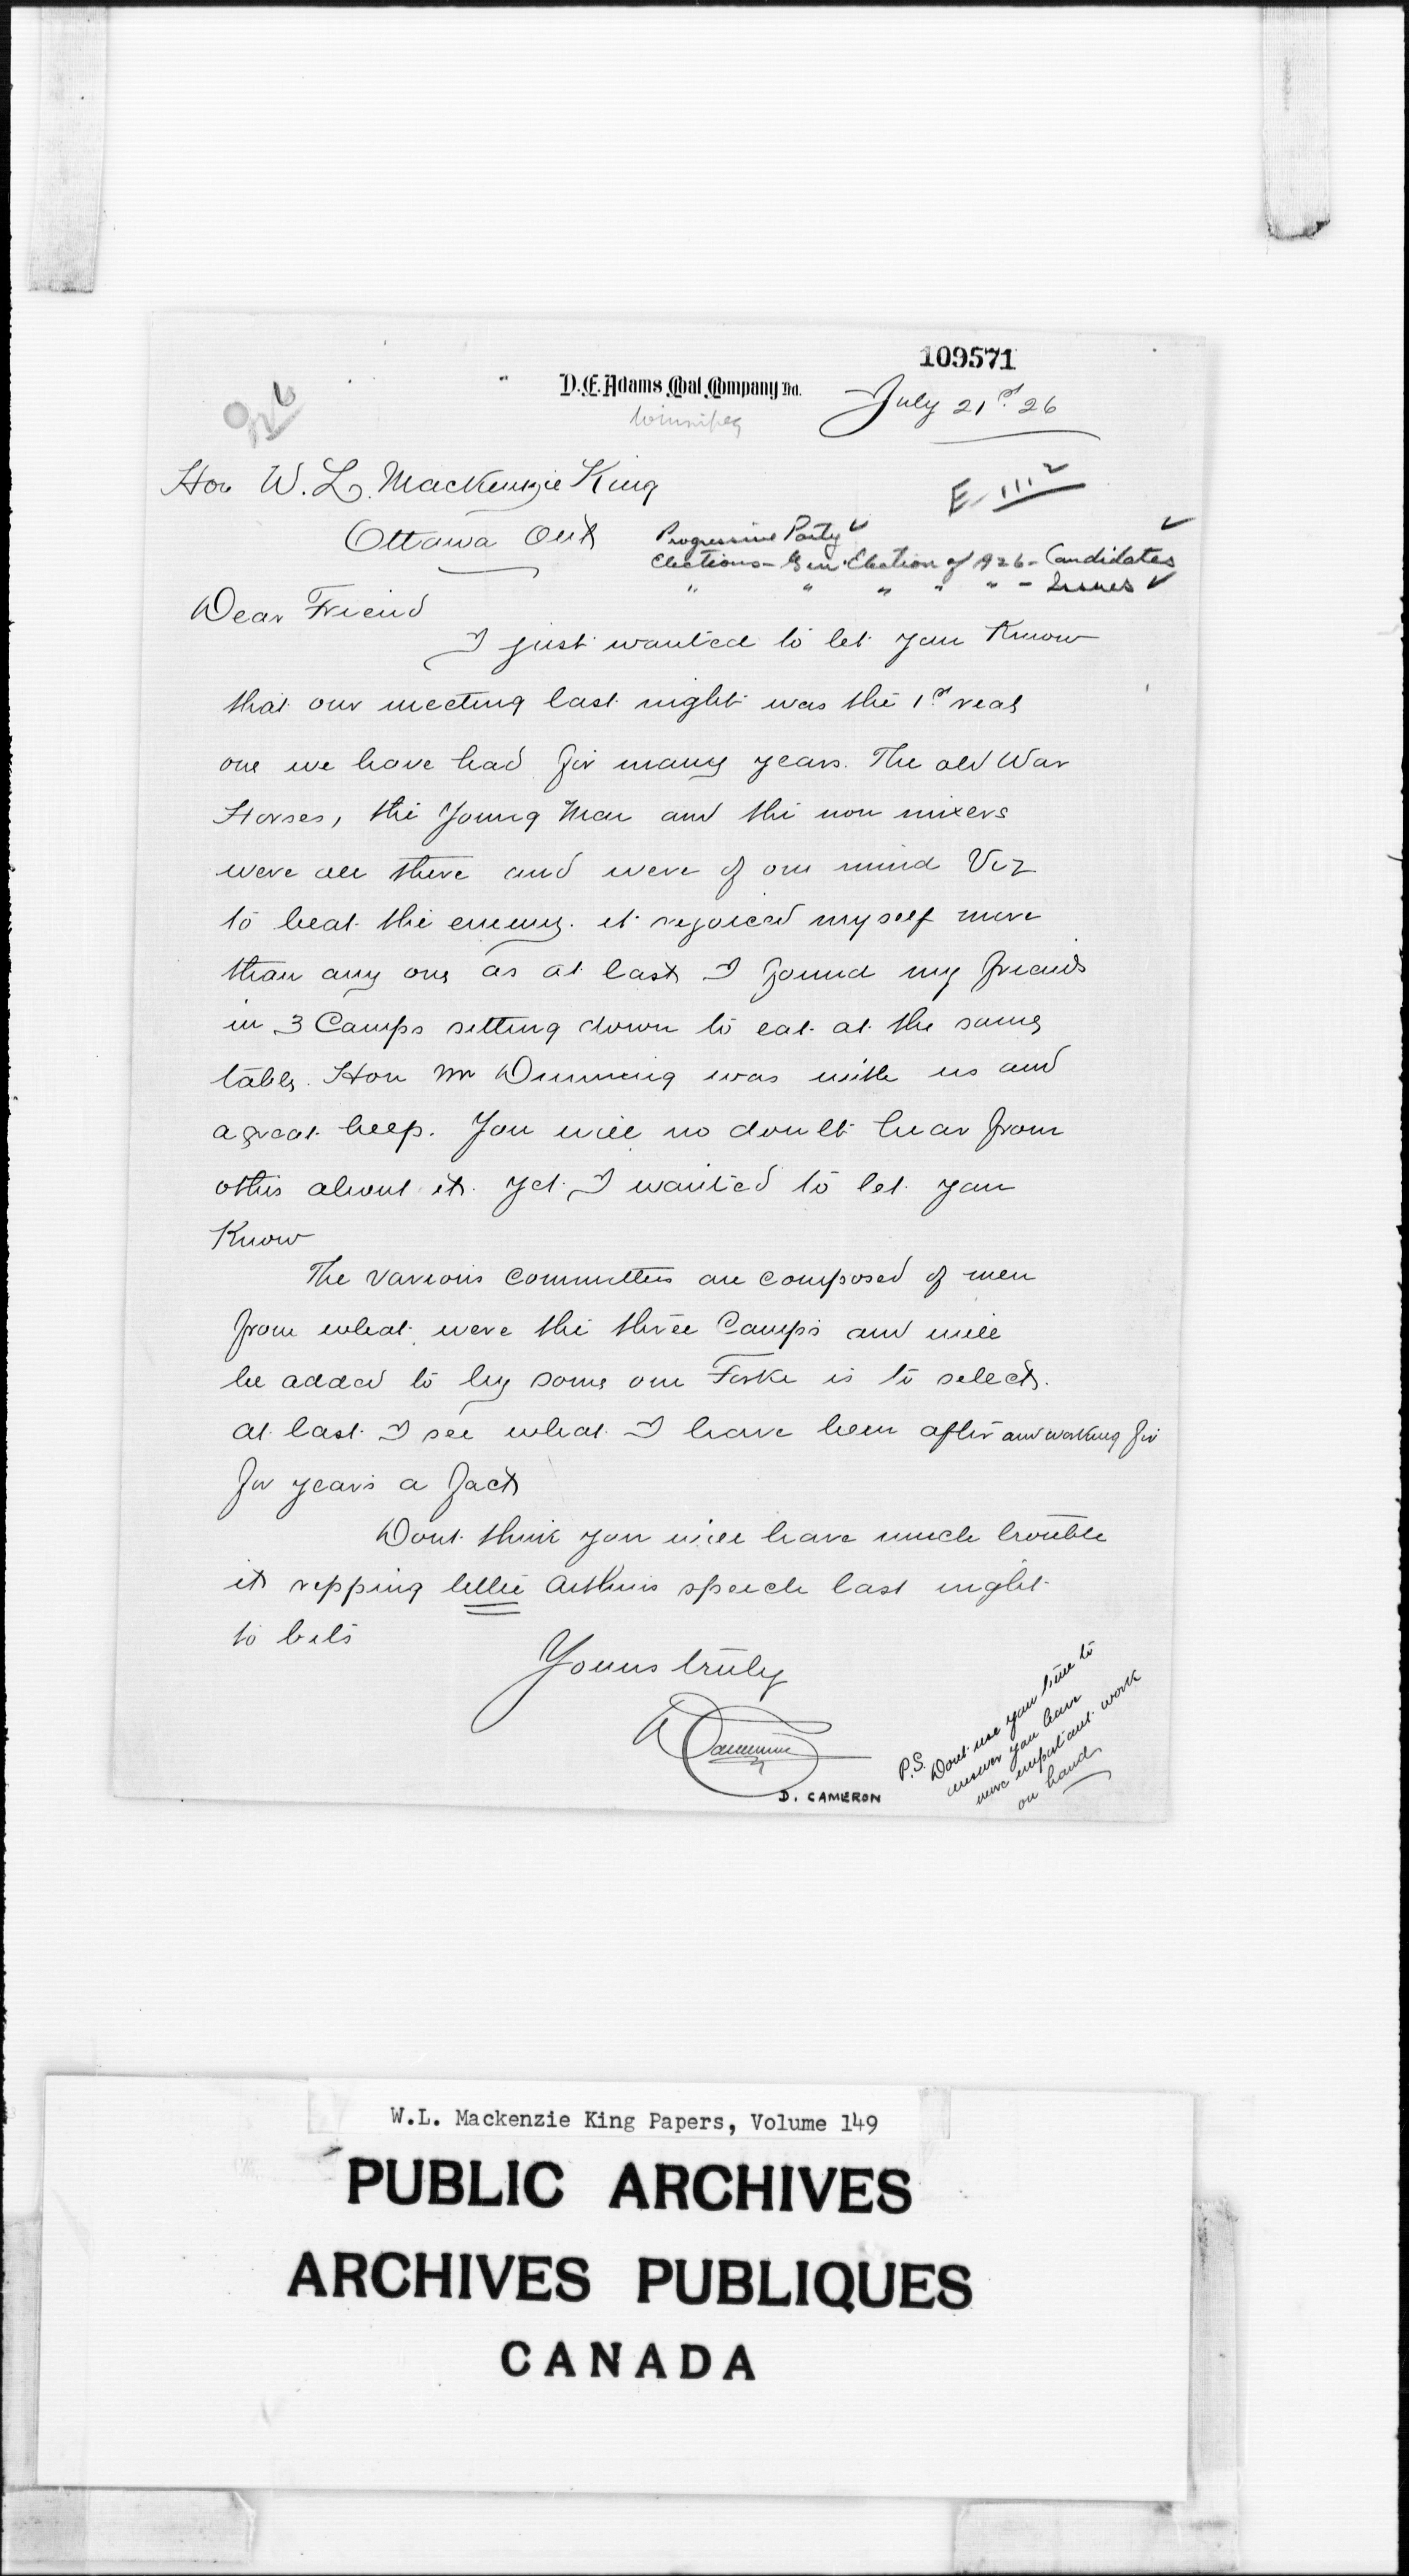 109571
D.E. Adams Coal Company Ltd.
Winnipeg
July 21st 26
926
Hon W. L. MacKenzie King
E-III 2
Ottawa Ont
Progressive Party ✓
Elections - Gen. Election of 1926 - Candidates ✓
" " " " " - Issues ✓
Dear Friend
I just wanted to let you Know
that our meeting last night was the 1st real
one we have had for many years. The old War
Horses, the Young Men and the non mixers
were all there and were of one mind Viz
to beat the enemy. it rejoiced myself more
than any one as at last I found my friends
in 3 Camps sitting down to eat at the same
table. Hon Mr Dunning was with us and
a great help. You will no doubt hear from
others about it. yet I wanted to let you
Know
The various committees are composed of men
from what were the three Camps and will
be added to by some one Forke is to select.
at last I see what I have been after and working for
for years a fact
Dont think you will have much trouble
it ripping little Arthurs speech last night
to bits
Yours truly
D Cameron
D. CAMERON
P.S. Dont use your time to
answer you have
more important work
on hand
W.L. Mackenzie King Papers, Volume 149
PUBLIC ARCHIVES
ARCHIVES PUBLIQUES
CANADA